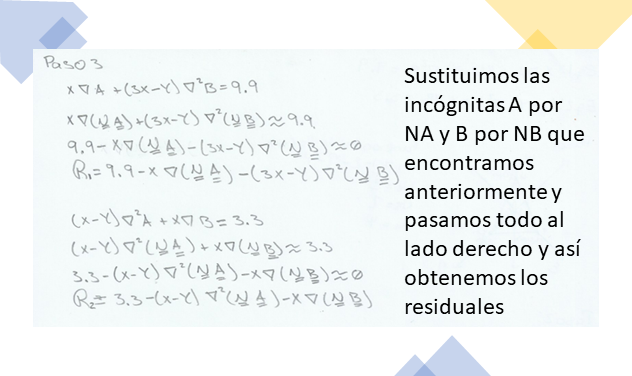 Paso 3
x∇A+(3x-Y)∇²B=9.9
x∇(N A)+(3x-Y)∇²(N B)≈9.9
9.9-x∇(N A)-(3x-Y)∇²(N B)≈0
R₁=9.9-x∇(N A)-(3x-Y)∇²(N B)
(x-Y)∇²A+x∇B=3.3
(x-Y)∇²(N A)+x∇(N B)≈3.3
3.3-(x-Y)∇²(N A)-x∇(N B)≈0
R₂=3.3-(x-Y)∇²(N A)-x∇(N B)
Sustituimos las
incógnitas A por
NA y B por NB que
encontramos
anteriormente y
pasamos todo al
lado derecho y así
obtenemos los
residuales